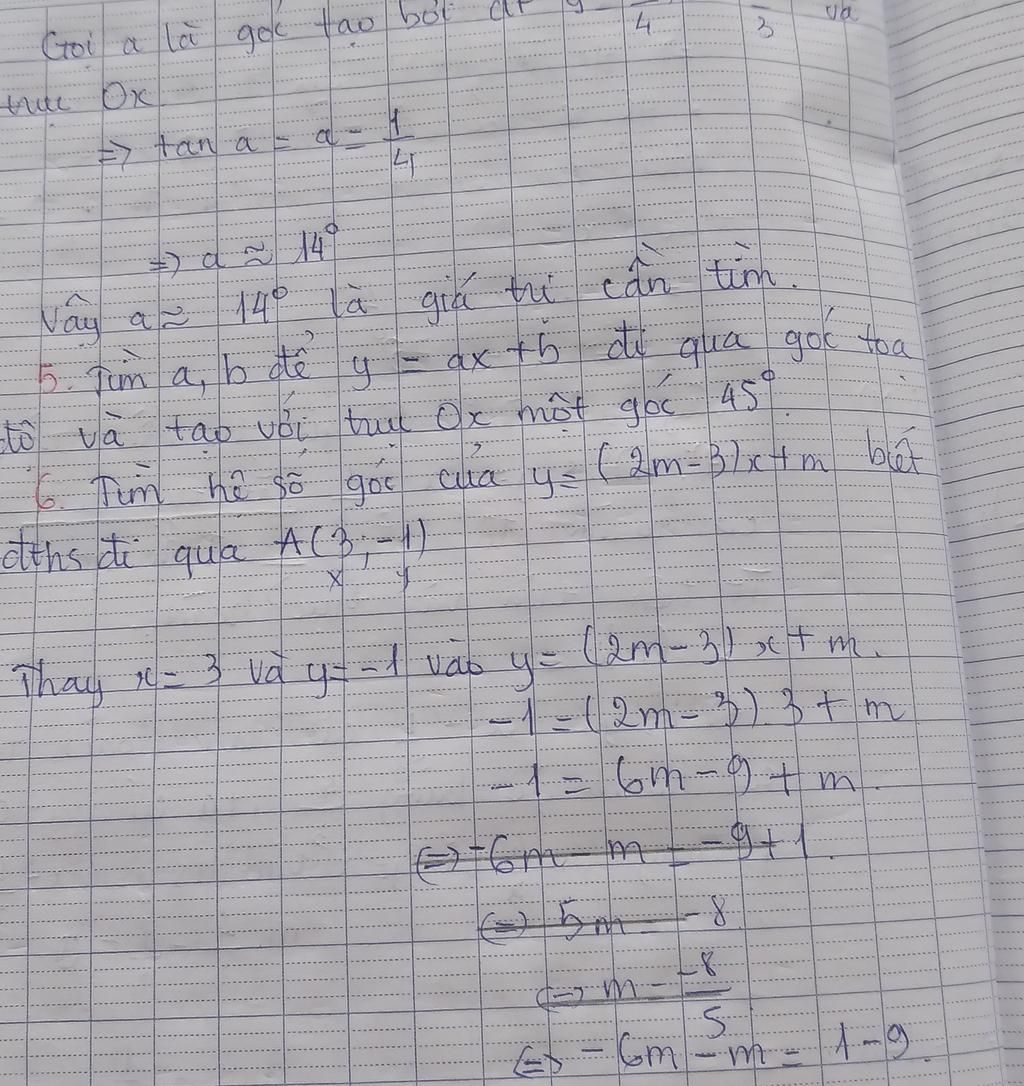 Gọi a là góc tạo bởi đt y 4 3 và
trục Ox
=> tan a = a = 1/4
=> a ≈ 14°
Vậy a ≈ 14° là giá trị cần tìm.
5. Tìm a, b để y = ax + b đi qua gốc tọa
độ và tạo với trục Ox một góc 45°.
6. Tìm hệ số góc của y = (2m-3)x + m biết
đths đi qua A(3; -1)
x y
Thay x = 3 và y = -1 vào y = (2m-3)x + m.
-1 = (2m-3).3 + m
-1 = 6m - 9 + m.
<=> -6m - m = -9+1.
<=> 5m = -8
<=> m = -8/5
<=> -6m - m = 1-9.